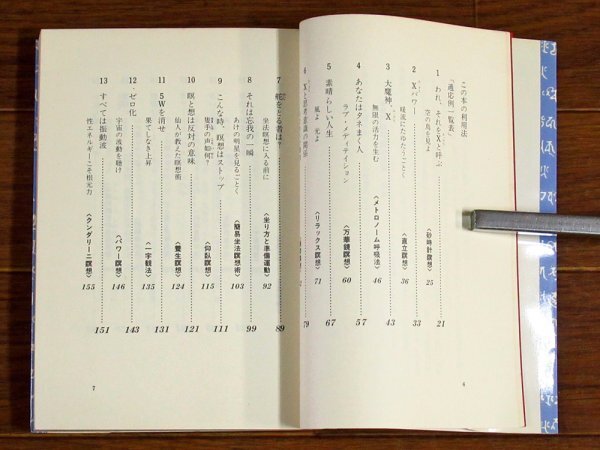 この本の利用法
「適応例一覧表」
1 われ、それをXと呼ぶ 21
空の鳥を見よ 〈砂時計瞑想〉 25
2 Xパワー 33
吸流にたゆたうごとく 〈直立瞑想〉 36
3 大魔神、X 43
無限の活力を生む 〈メトロノーム呼吸法〉 46
4 あなたはタネまく人 57
ラブ・メディテイション 〈万華鏡瞑想〉 60
5 素晴らしい人生 67
風よ 光よ 〈リラックス瞑想〉 71
6 Xと思考意識の関係 79
7 蛇をどる者諸? 89
坐法瞑想に入る前に 〈坐り方と準備運動〉 92
8 それは忘我の一瞬 99
あけの明星を見るごとく 〈簡易坐法瞑想術〉 103
9 こんな時、瞑想はストップ 111
隻手の声如何? 〈仰臥瞑想〉 115
10 瞑と想は反対の意味 121
仙人が教えた瞑想術 〈養生瞑想〉 124
11 5Wを消せ 131
果てしなき上昇 〈一字観法〉 135
12 ゼロ化 143
宇宙の波動を聴け 〈パワー瞑想〉 146
13 すべては振動波 151
性エネルギーこそ根元力 〈クンダリーニ瞑想〉 155
6
7